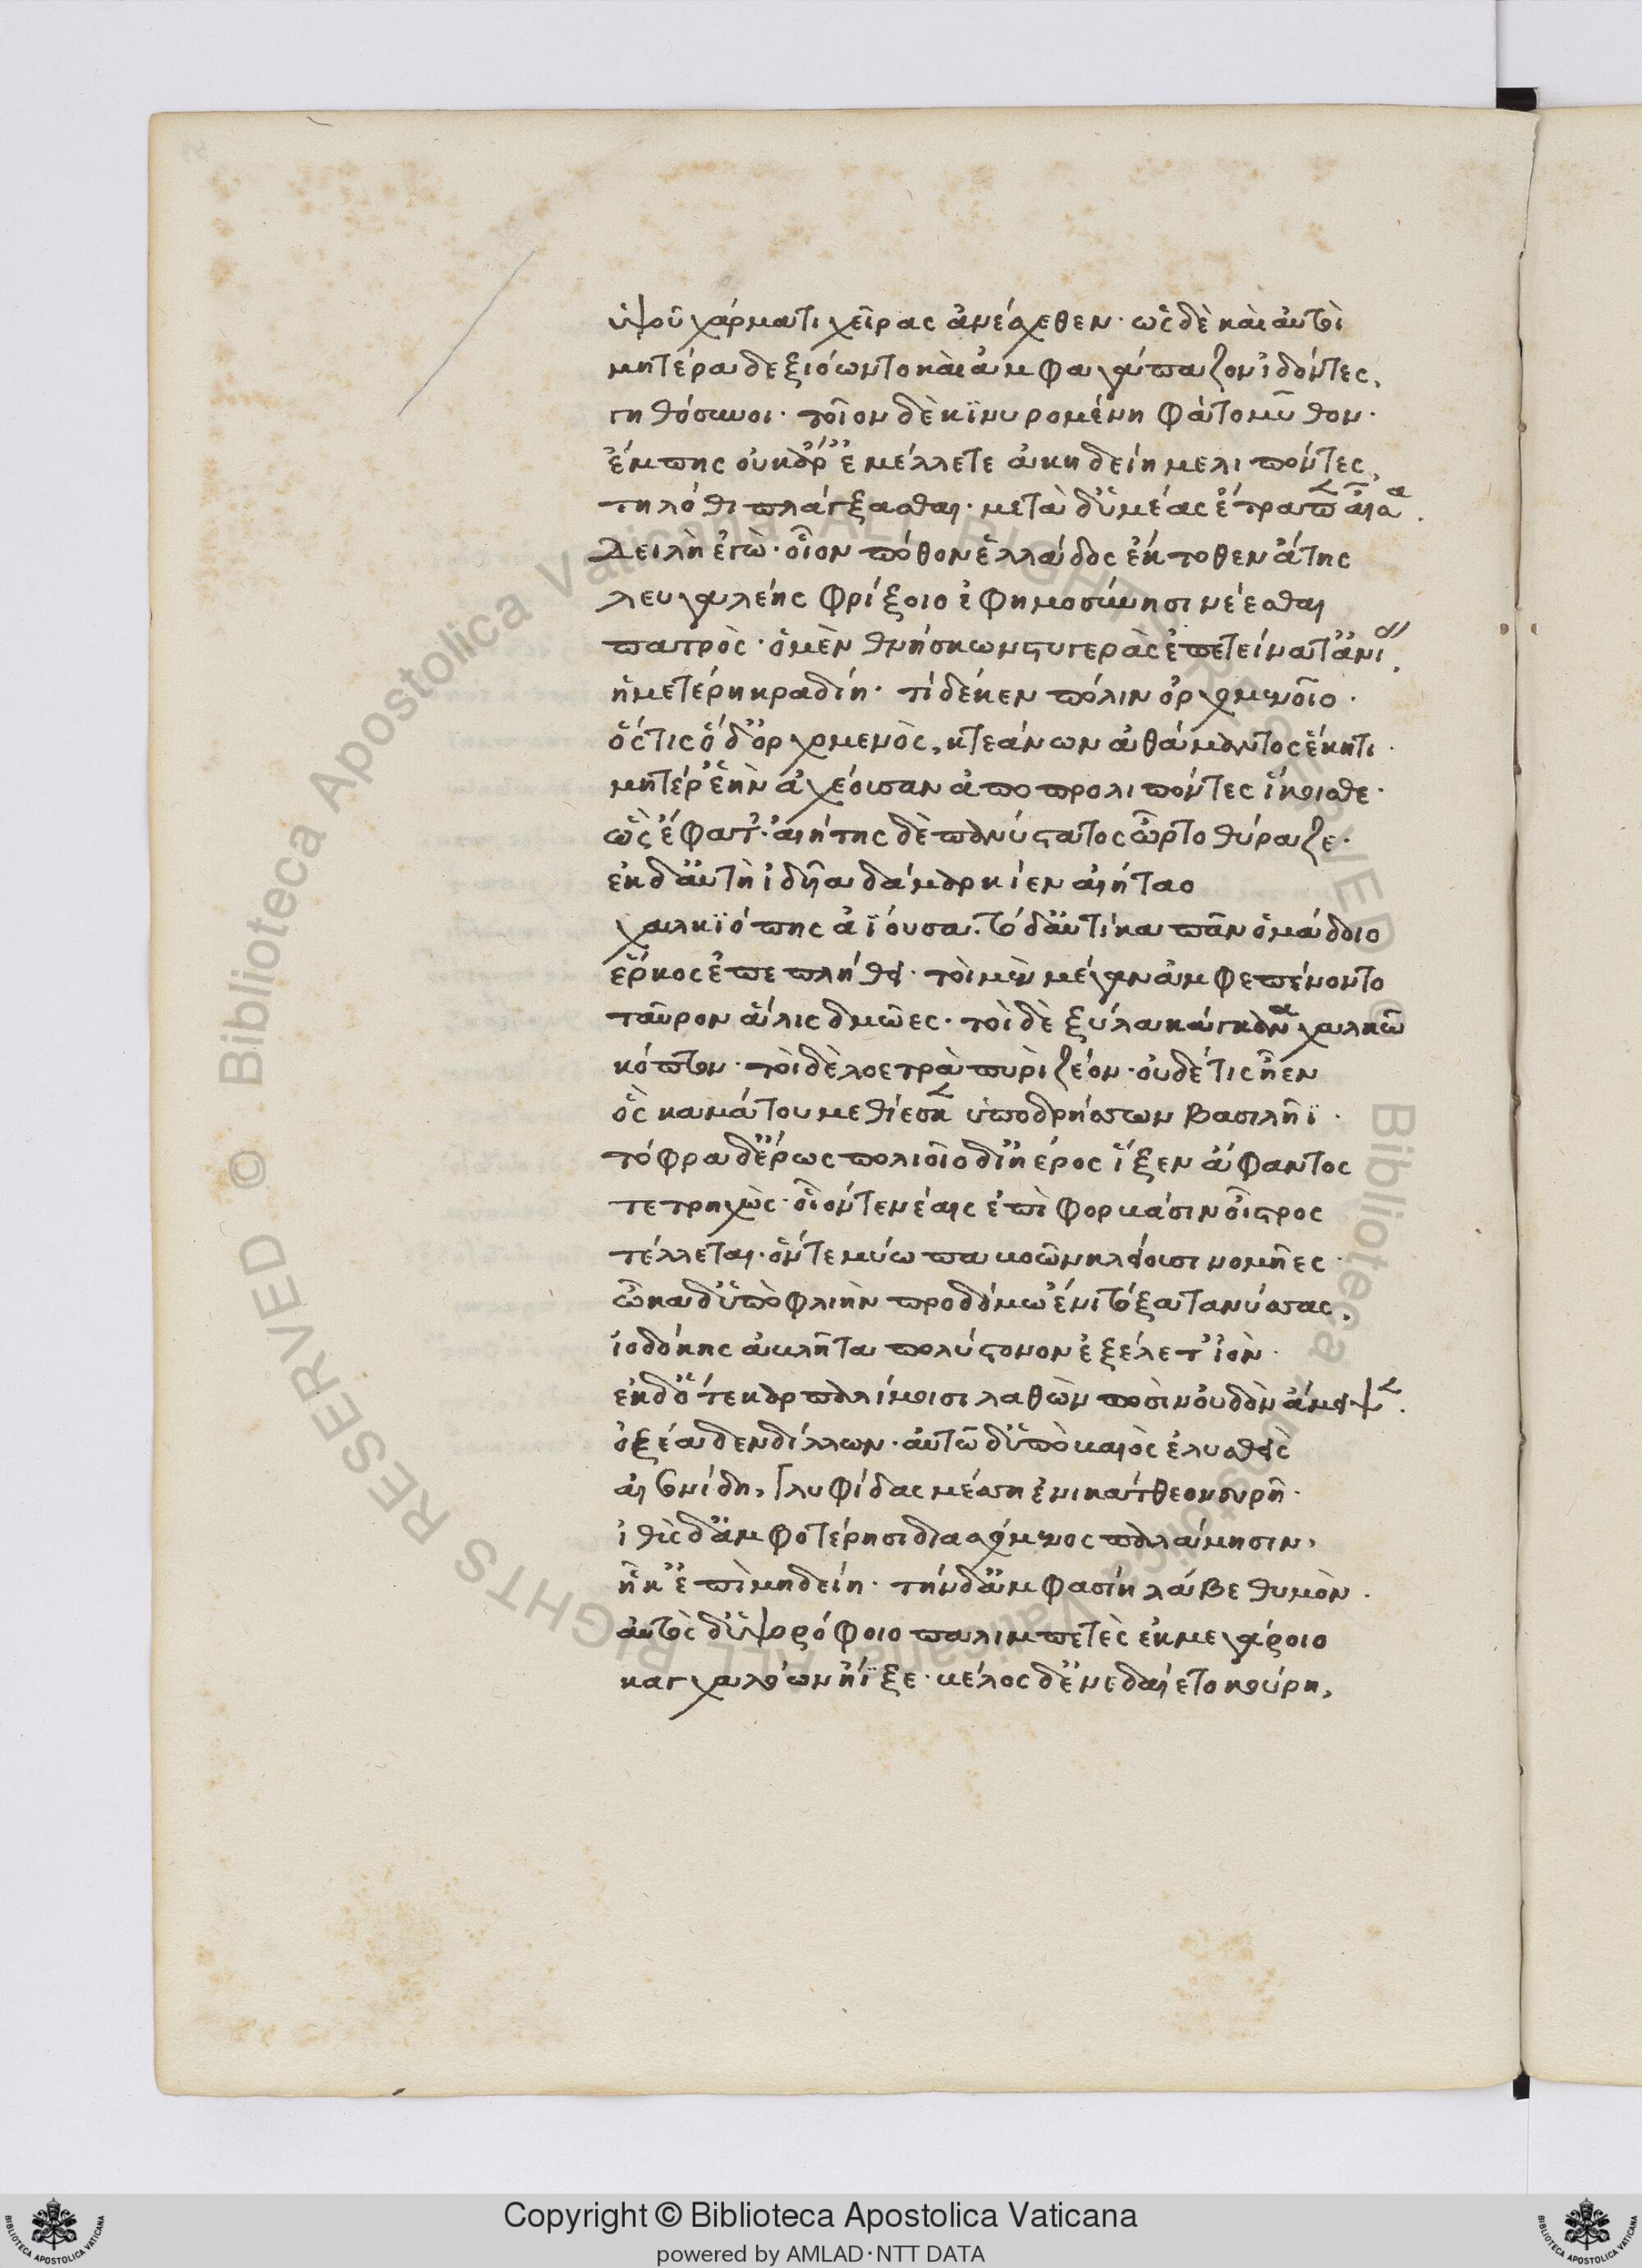 ὑψοῦ χάρματι χεῖρας ἀνέσχεθεν· ὣς δὲ καὶ αὐτοὶ
μητέρα δεξιόωντο καὶ ἀμφαγάπαζον ἰδόντες,
γηθόσυνοι· τοῖον δὲ κινυρομένη φάτο μῦθον·
ἔμπης οὐκ ἄρ' ἐμέλλετε ἀκηδείῃ με λιπόντες,
τηλόθι πλάγξασθαι· μετὰ δ' ὑμέας ἔτραπεν αἶσα.
Δειλὴ ἐγὼ· οἷον πόθον ἑλλάδος ἔκτοθεν ἄτης
λευγαλέης φρίξοιο ἐφημοσύνῃσι νέεσθαι
πατρὸς· ὁ μὲν θνήσκων στυγερὰς ἐπετείνατ' ἀνίας
ἡμετέρῃ κραδίῃ· τί δέ κεν πόλιν ὀρχομενοῖο·
ὅστις ὅδ' ὀρχομενὸς, κτεάνων ἀθάμαντος ἕκητι·
μητέρ' ἑὴν ἀχέουσαν ἀποπρολιπόντες ἵκοισθε·
ὣς ἔφατ'· αἰήτης δὲ πανύστατος ὦρτο θύραζε·
ἐκ δ' αὐτὴ ἰδῆα δάμαρ κίεν αἰήταο
χαλκιόπης ἀΐουσα. τὸ δ' αὐτίκα πᾶν ὁμάδοιο
ἕρκος ἐπεπλήθει· τοὶ μὲν μέγαν ἀμφεπένοντο
ταῦρον ἅλις δμῶες· τοὶ δὲ ξύλα κάγκανα χαλκῶ
κόπτον· τοὶ δὲ λοετρὰ πυρὶ ζέον· οὐδέ τις ἦεν
ὃς καμάτου μεθίεσκεν ὑποδρήσσων βασιλῆϊ·
τόφρα δ' ἔρως πολιοῖο δι' ἠέρος ἷξεν ἄφαντος
τετρηχὼς· οἷόν τε νέαις ἐπὶ φορβάσιν οἶστρος
τέλλεται· ὅν τε μύωπα βοῶν κλείουσι νομῆες·
ὦκα δ' ὑπὸ φλιὴν προδόμω ἔνι τόξα τανύσσας,
ἰοδόκης ἀβλῆτα πολύστονον ἐξέλετ' ἰὸν·
ἐκ δ' ὅτε καρπαλίμοισι λαθὼν ποσὶν οὐδὸν ἄμειψεν.
ὀξέα δενδίλλων· αὐτῶ δ' ὑπὸ βαιὸς ἐλυσθεὶς
αἰσονίδῃ, γλυφίδας μέσσῃ ἐνικάτθεο νευρῇ·
ἰθὺς δ' ἀμφοτέρῃσι διασχόμενος παλάμῃσιν,
ἧκ' ἐπὶ μηδείῃ· τὴν δ' ἀμφασίη λάβε θυμὸν·
αὐτὸς δ' ὑψορόφοιο παλιμπετὲς ἐκ μεγάροιο
καγχαλόων ἤϊξε· βέλος δ' ἐνεδαίετο κούρῃ,
Copyright © Biblioteca Apostolica Vaticana
powered by AMLAD·NTT DATA